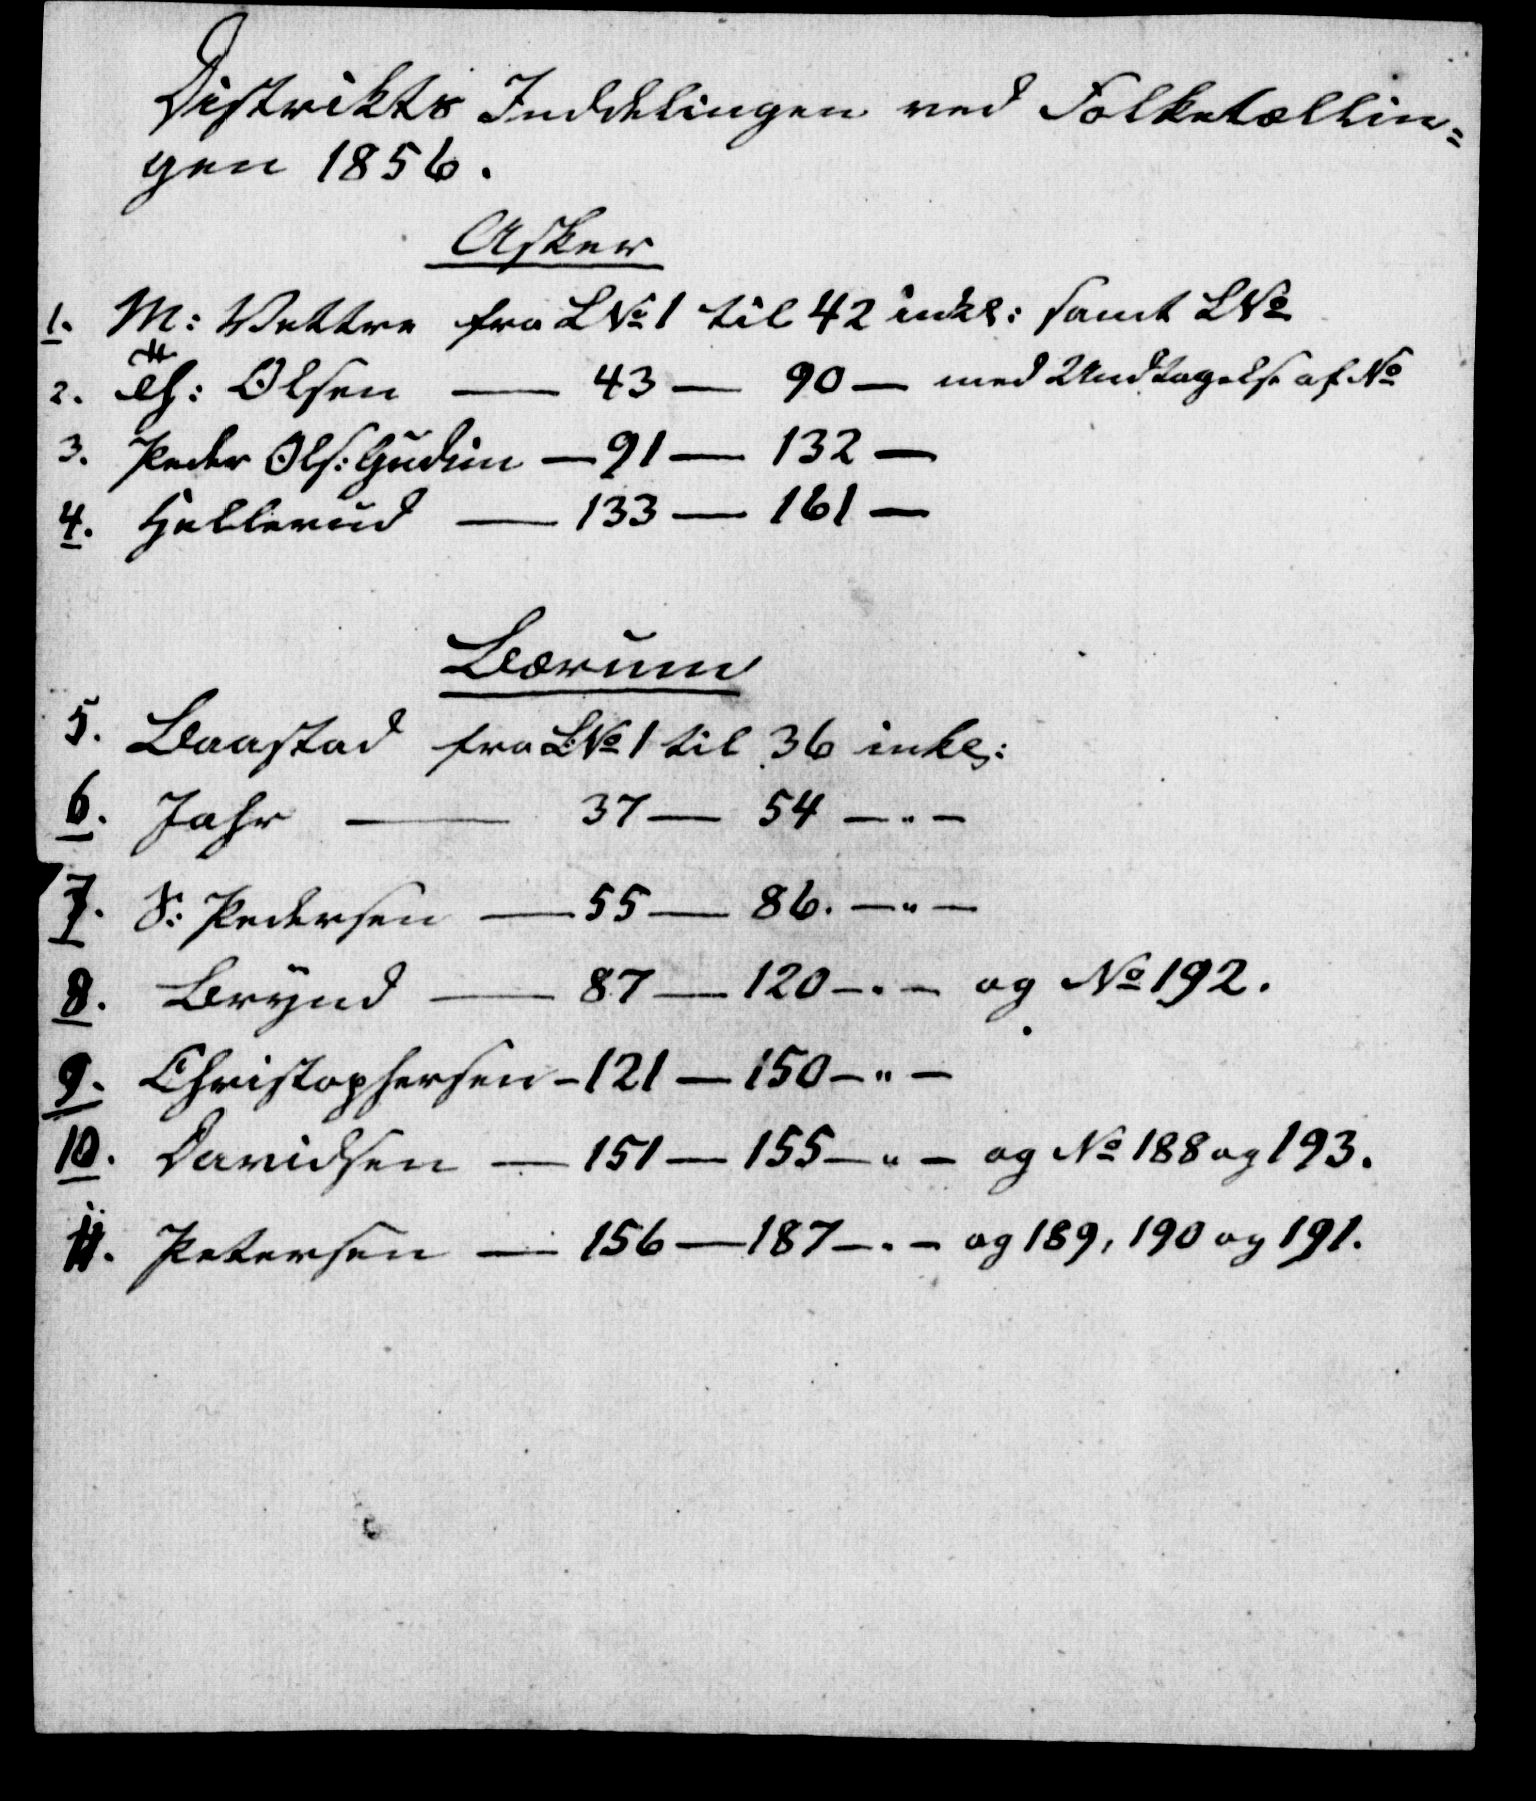 Distrikts Inddelingen ved Folketællin=
gen 1856.
Asker
1. M: Vettre fra LNo 1 til 42 inkl: samt LNo
2. Th: Olsen — 43 — 90 — med Undtagelse af No
3. Peder Ols: Gudim — 91 — 132 —
4. Hellerud — 133 — 161 —
Bærum
5. Baastad fra LNo 1 til 36 inkl:
6. Jahr — 37 — 54 — " —
7. S: Pedersen — 55 — 86. — " —
8. Brynd — 87 — 120 — " — og No 192.
9. Christophersen — 121 — 150 — " —
10. Davidsen — 151 — 155 — " — og No 188 og 193.
11. Petersen — 156 — 187 — " — og 189, 190 og 191.